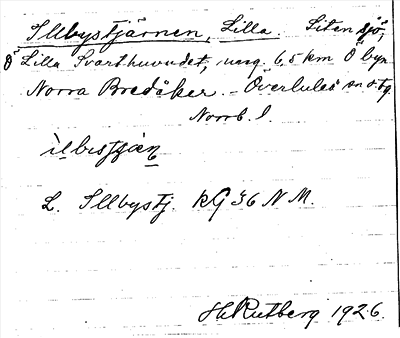 Illbystjärnen, Lilla. Liten sjö,
Ö Lilla Svarthuvudet, ung. 6,5 km Ö byn
Norra Bredåker. - Överluleå sn o. tg
Norrb. l.
ilbistjæn
L. Illbystj. kG 36 N M.
H. Rutberg 1926.